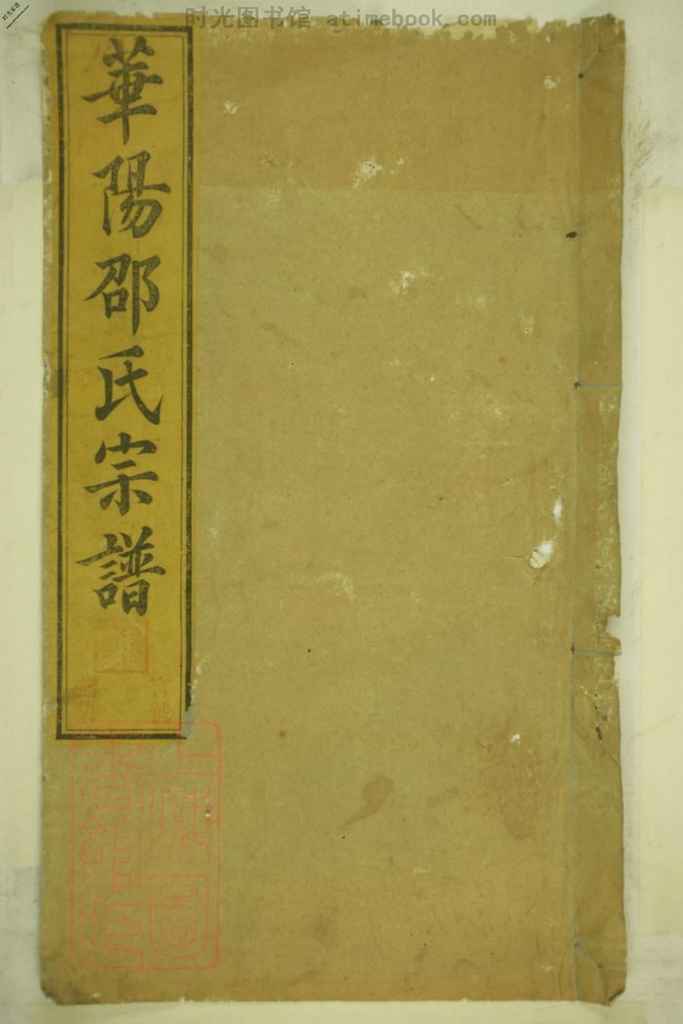 时光图书馆 atimebook.com
華陽邵氏宗譜